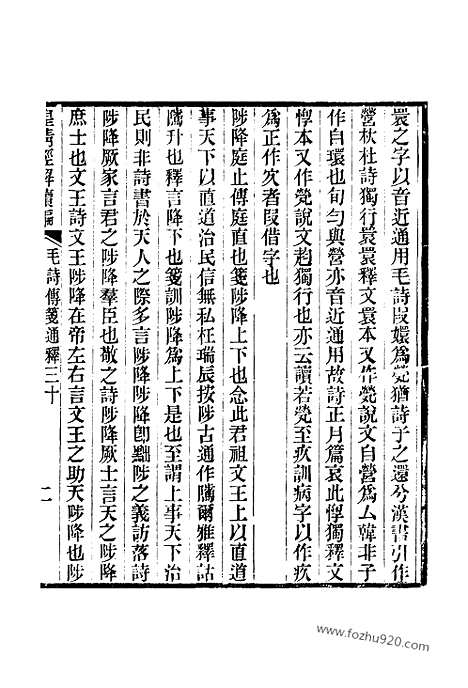 睘之字以音近通用毛詩叚嬛爲煢猶詩子之還兮漢書引作
營杕杜詩獨行睘睘釋文睘本又作煢說文自營爲厶韓非子
作自環也旬勻與營亦音近通用故詩正月篇哀此惸獨釋文
惸本又作煢說文趜獨行也亦云讀若煢至疚訓病字以作疚
爲正作㝌者叚借字也
陟降庭止傳庭直也箋陟降上下也念此君祖文王上以直道
事天下以直道治民信無私枉瑞辰按陟古通作騭爾雅釋詁
騭升也釋言降下也箋訓陟降爲上下是也至謂上事天下治
民則非詩書於天人之際多言陟降陟降卽黜陟之義訪落詩
陟降厥家言君之陟降羣臣也敬之詩陟降厥士言天之陟降
庶士也文王詩文王陟降在帝左右言文王之助天陟降也陟
皇清經解續編
毛詩傳箋通釋三十
二
www.fozhu920.com